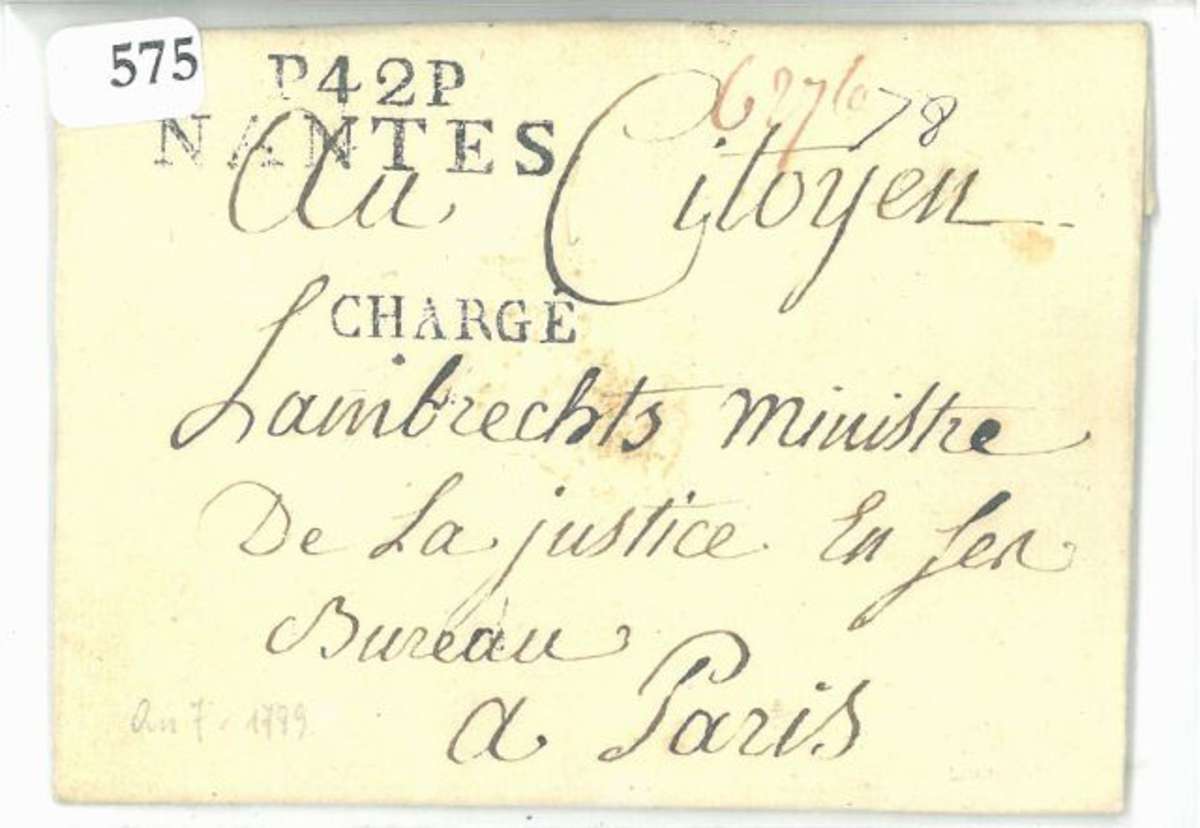 575
P42P
NANTES
78
Au Citoyen
CHARGÉ
Lambrechts ministre
De La justice En Son
Bureau
a Paris
An 7 - 1799